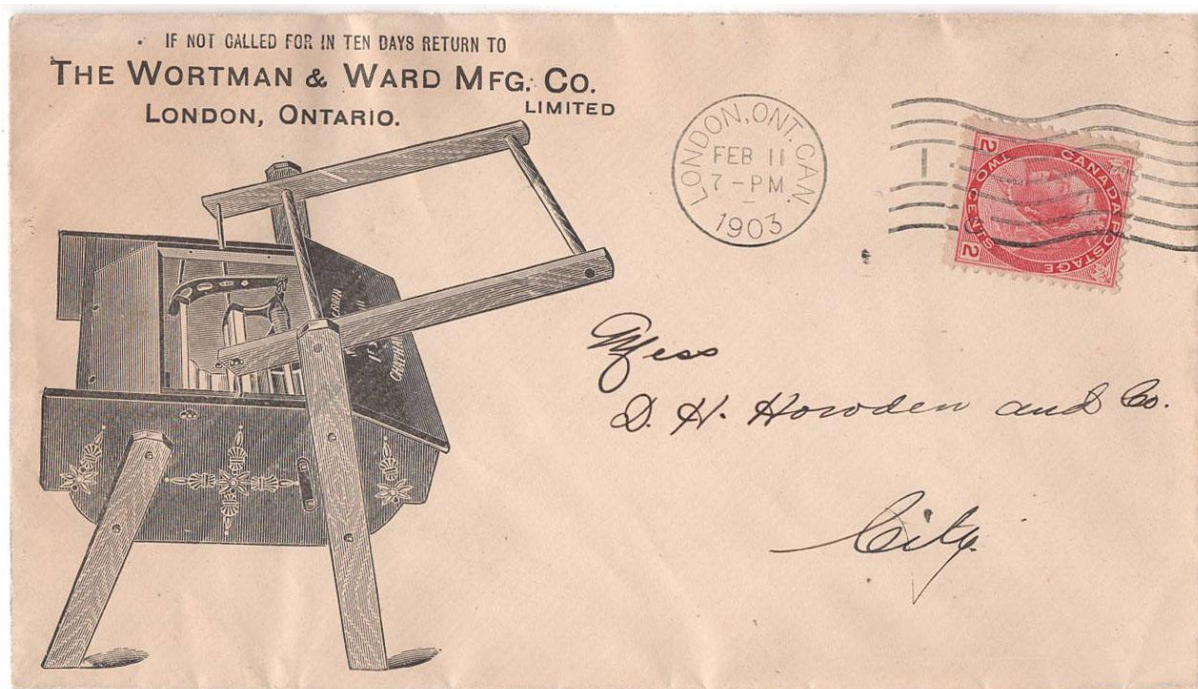 IF NOT CALLED FOR IN TEN DAYS RETURN TO
THE WORTMAN & WARD MFG. CO.
LIMITED
LONDON, ONTARIO.
LONDON, ONT. CAN.
FEB 11
7-PM
1903
1
CANADA POSTAGE
TWO CENTS
2 2
Mess
D. H. Howden and Co.
City.